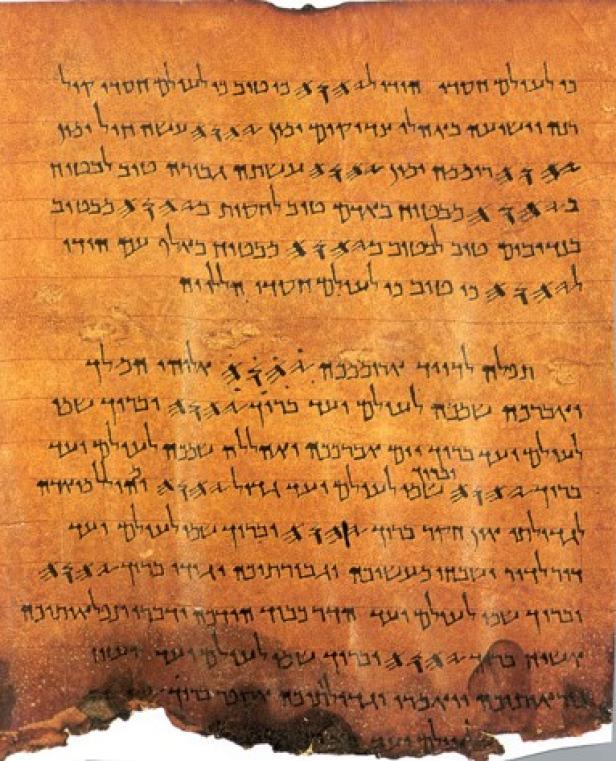 כי לעולם חסדו הודו ל𐤉𐤄𐤅𐤄 כי טוב כי לעולם חסדו קול
רנה וישועה באהלי צדיקים ימין 𐤉𐤄𐤅𐤄 עשה חיל ימין
𐤉𐤄𐤅𐤄 רוממה ימין 𐤉𐤄𐤅𐤄 עשתה גבורה טוב לבטוח
ב𐤉𐤄𐤅𐤄 מבטוח באדם טוב לחסות ב𐤉𐤄𐤅𐤄 מבטוח
בנדיבים טוב לבטוח ב𐤉𐤄𐤅𐤄 מבטוח באלף עם הודו
ל𐤉𐤄𐤅𐤄 כי טוב כי לעולם חסדו הללויה
תפלה לדויד ארוממכה 𐤉𐤄𐤅𐤄 אלוהי המלך
ואברכה שמכה לעולם ועד ברוך 𐤉𐤄𐤅𐤄 וברוך שמו
לעולם ועד ברוך יום אברככה ואהללה שמכה לעולם ועד
ברוך 𐤉𐤄𐤅𐤄 וברוך שמו לעולם ועד גדול 𐤉𐤄𐤅𐤄 ומהולל מואדה
לגדולתו אין חקר ברוך 𐤉𐤄𐤅𐤄 וברוך שמו לעולם ועד
דור לדור ישבחו מעשיכה וגבורתיכה יגידו ברוך 𐤉𐤄𐤅𐤄
וברוך שמו לעולם ועד הדר כבוד הודכה ודברי נפלאותיכה
אשיח ברוך 𐤉𐤄𐤅𐤄 וברוך שמו לעולם ועד ועזוז
נוראותיכה יואמרו וגדולותיכה אספר ברוך
לעולם ועד